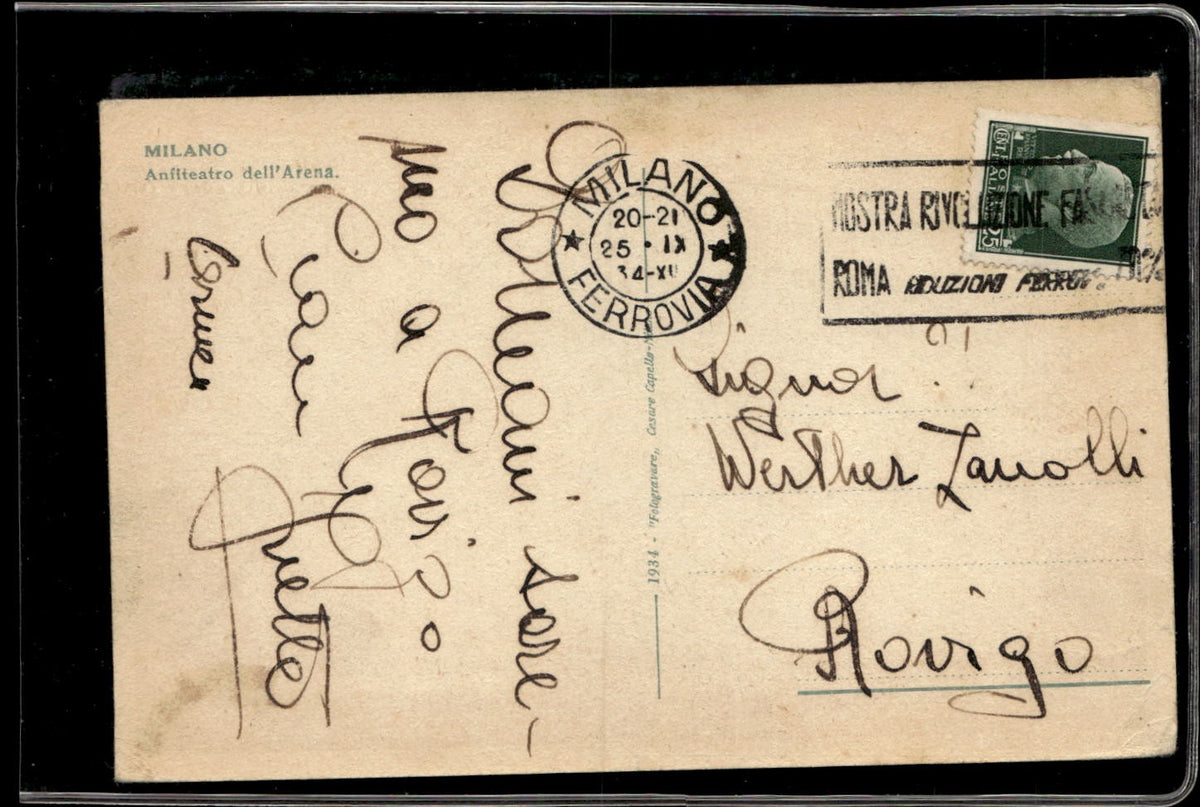 MILANO
Anfiteatro dell'Arena.
Domani sare-
mo a Rovigo
Ciau
Guetto
Bruno
MILANO
20-21
25 · IX
34-XII
FERROVIA
MOSTRA RIVOLUZIONE FASCISTA
ROMA RIDUZIONI FERROV. 70%
1934 - "Fotogravure„ Cesare Capello-M
Signor
Werther Zanolli
Rovigo